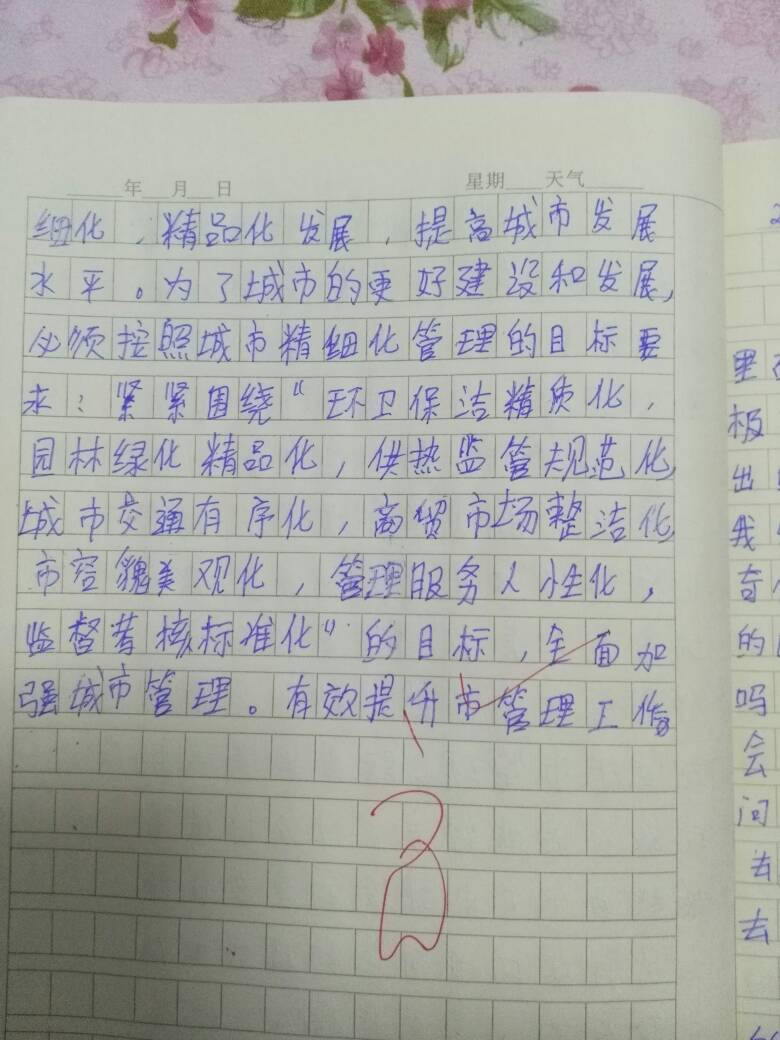 年 月 日 星期 天气
细化、精品化发展，提高城市发展
水平。为了城市的更好建设和发展，
必须按照城市精细化管理的目标要
求：紧紧围绕“环卫保洁精质化，
园林绿化精品化，供热监管规范化
城市交通有序化，商贸市场整洁化
市容貌美观化，管理服务人性化，
监督考核标准化”的目标，全面加
强城市管理。有效提升市管理工作
里
极
出
我
奇
的
吗
会
问
去
去